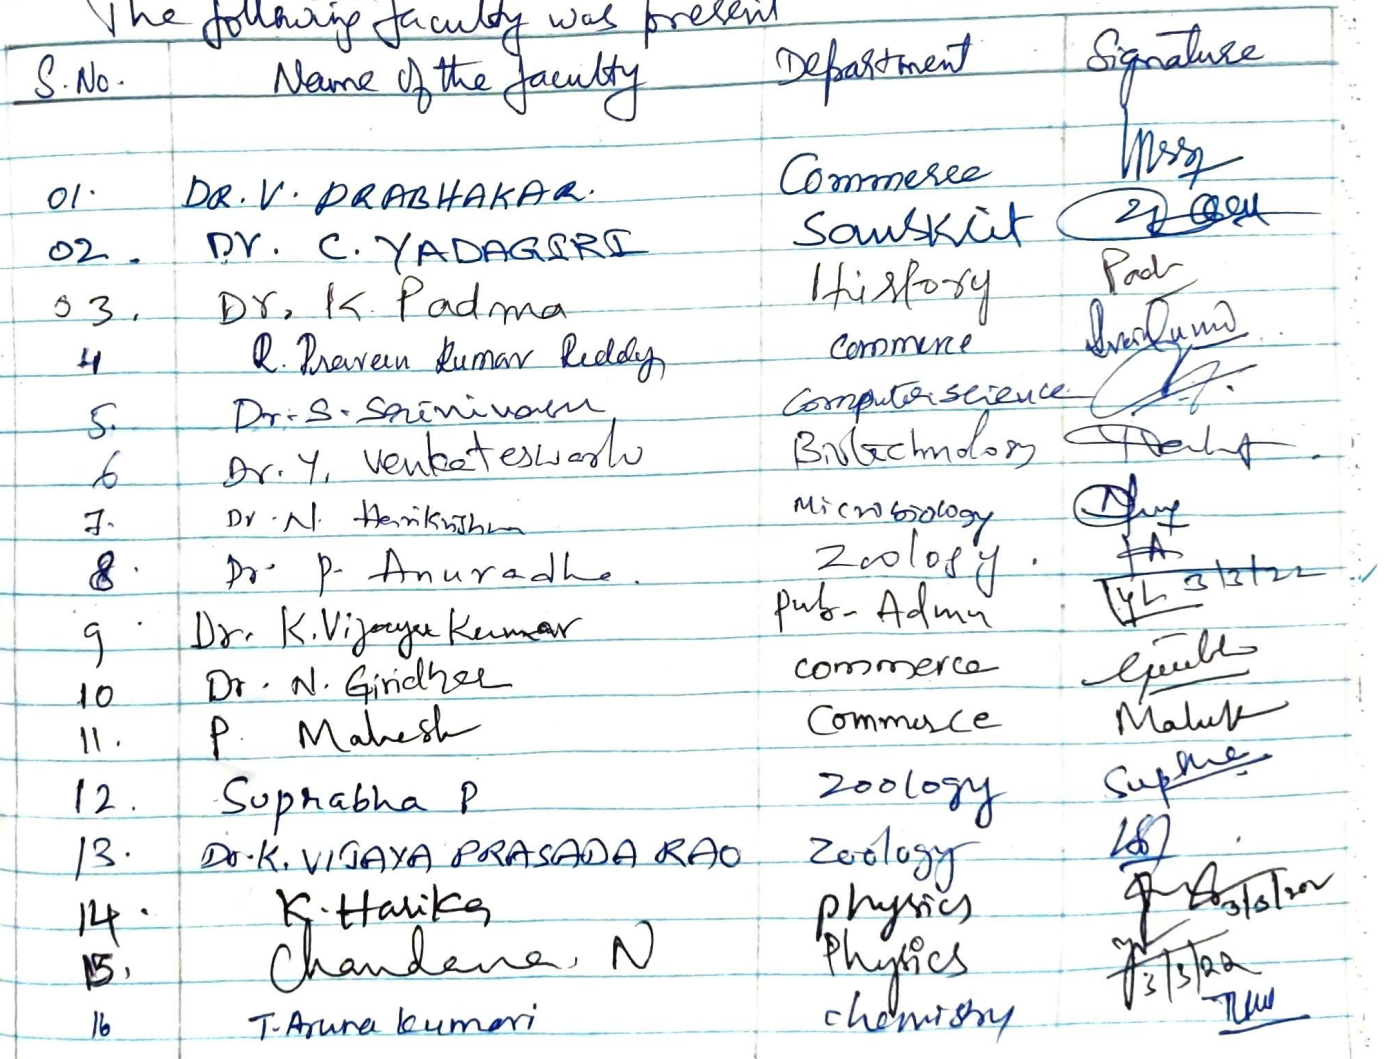 The following faculty was present
S.No. Name of the faculty Department Signature
01. DR. V. PRABHAKAR. Commerce
02. Dr. C. YADAGIRI Sanskrit
03. Dr. K. Padma History Pad
4 R. Praveen Kumar Reddy commerce
5. Dr. S. Srinivasu Computer science
6 Dr. Y. Venkateswarlu Biotechnology
7. Dr. N. Harikrishna Microbiology
8. Dr. P. Anuradha. Zoology.
9. Dr. K. Vijaya Kumar Pub-Admn 3/3/22
10 Dr. N. Giridhar commerce
11. P. Mahesh Commerce
12. Suprabha P Zoology
13. Dr. K. VIJAYA PRASADA RAO Zoology
14. K. Harika physics
15. Chandana. N Physics 3/3/22
16 T. Aruna kumari chemistry